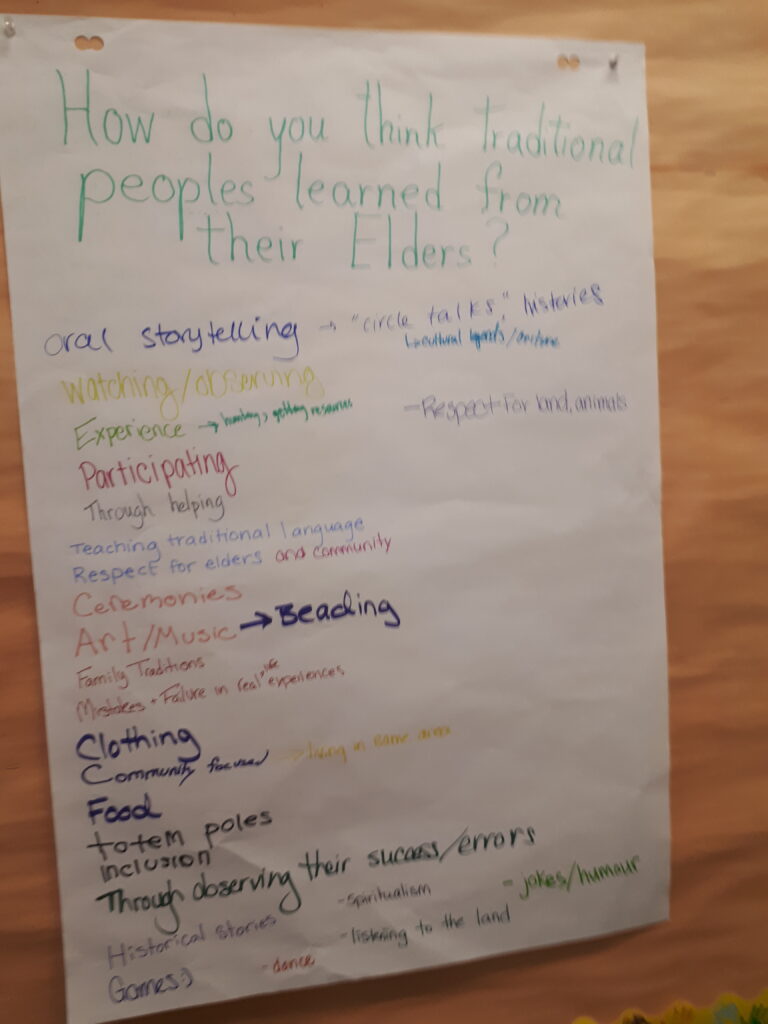 How do you think traditional
peoples learned from
their Elders?
oral storytelling → "circle talks," histories
↳ cultural legends/
watching/observing
Experience → hunting, getting resources
- Respect For land, animals
Participating
Through helping
Teaching traditional language
Respect for elders and community
Ceremonies
Art/Music → Beading
Family Traditions
Mistakes + Failure in real life experiences
Clothing
Community focused → living in same area
Food
totem poles
inclusion
Through observing their success/errors
Historical stories
- spiritualism
- jokes/humour
- listening to the land
Games :)
- dance